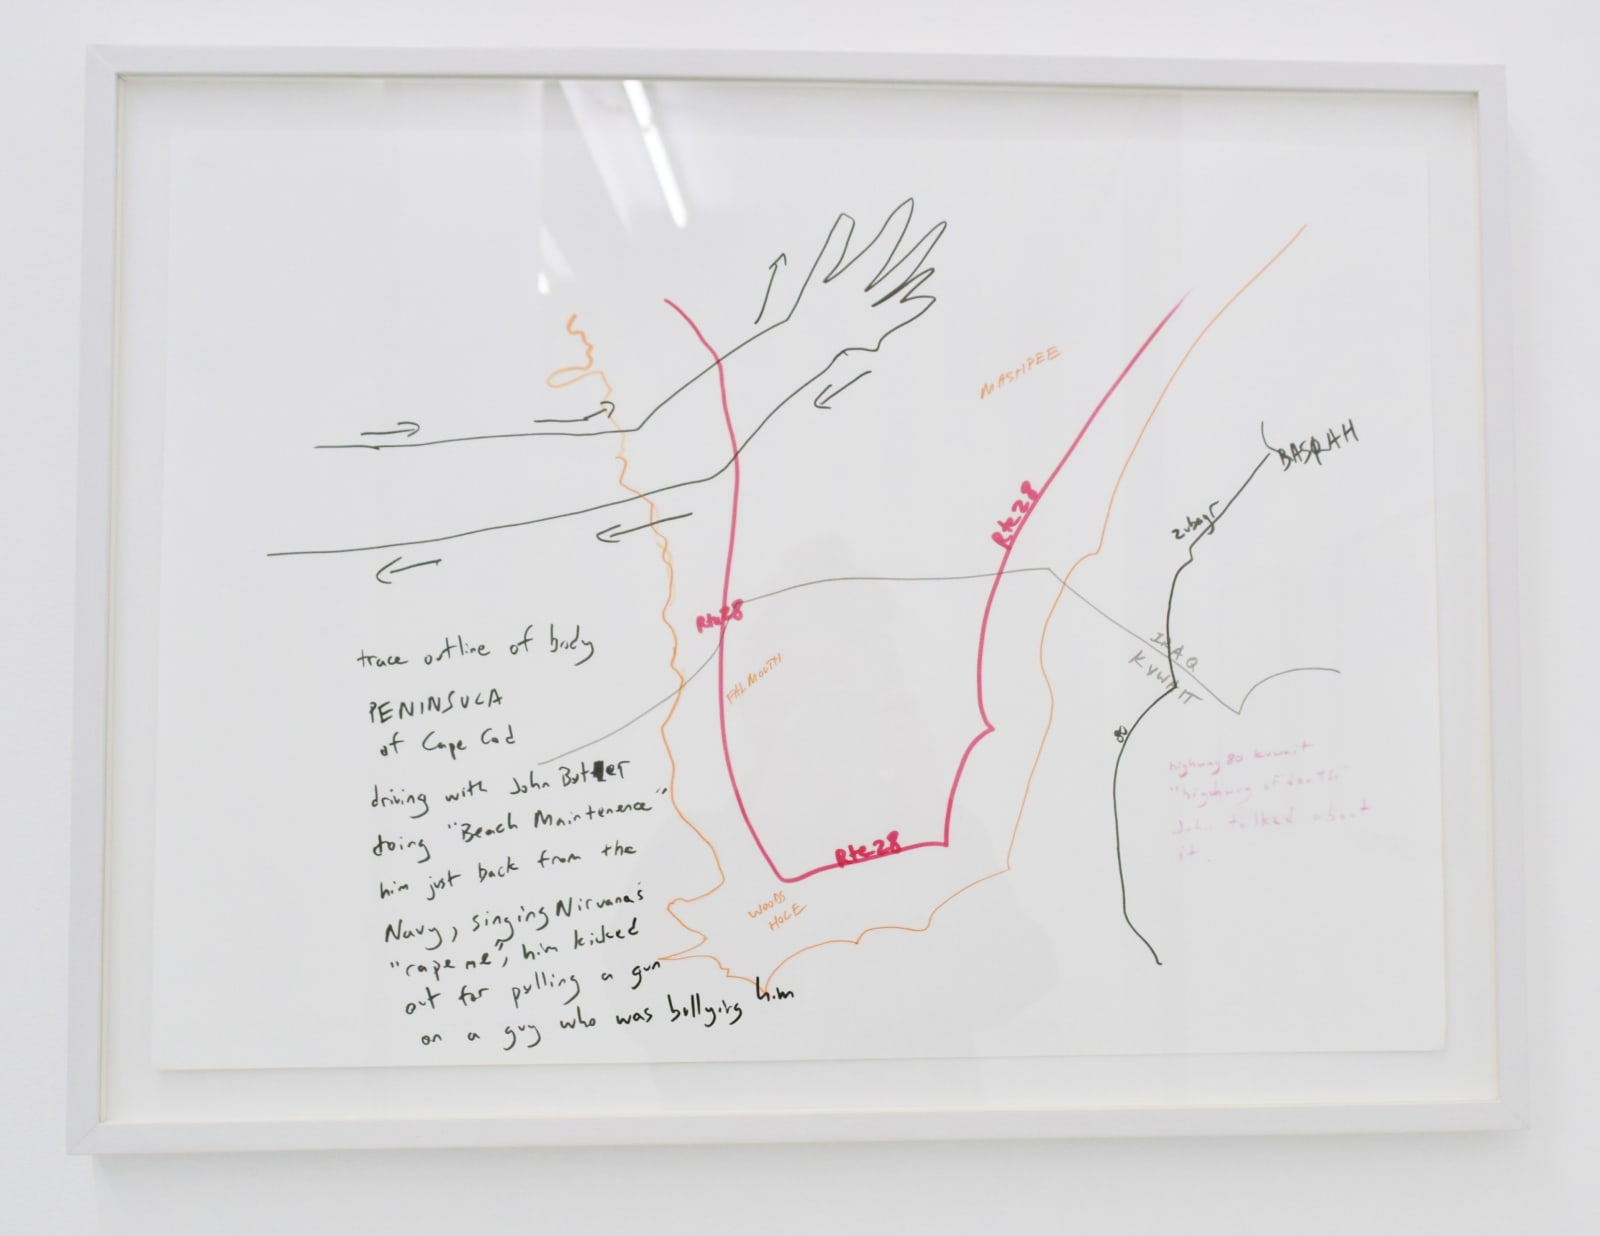 MASHPEE
BASRAH
zubayr
Rte 28
Rte 28
IRAQ
KUWAIT
FALMOUTH
80
Rte 28
WOODS
HOLE
trace outline of body
PENINSULA
of Cape Cod
driving with John Butler
doing "Beach Maintenence"
him just back from the
Navy, singing Nirvana's
"rape me", him kicked
out for pulling a gun
on a guy who was bullying him
highway 80 kuwait
"highway of death"
John talked about
it.